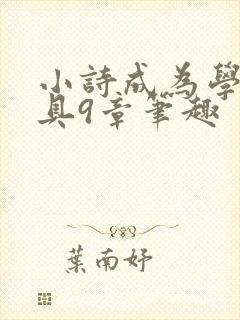 小詩成為學
具9章筆趣
葉南妤